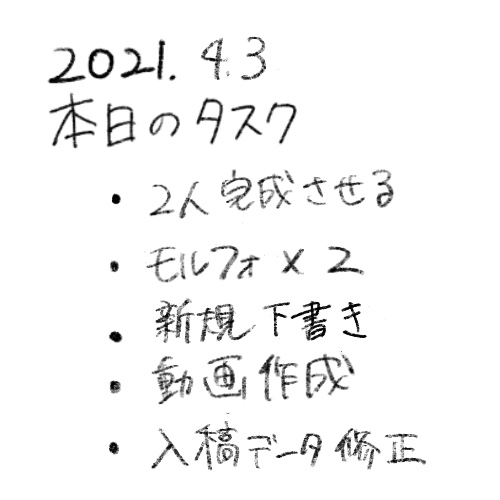 2021. 4.3
本日のタスク
・2人完成させる
・モルフォ×2
・新規下書き
・動画作成
・入稿データ修正